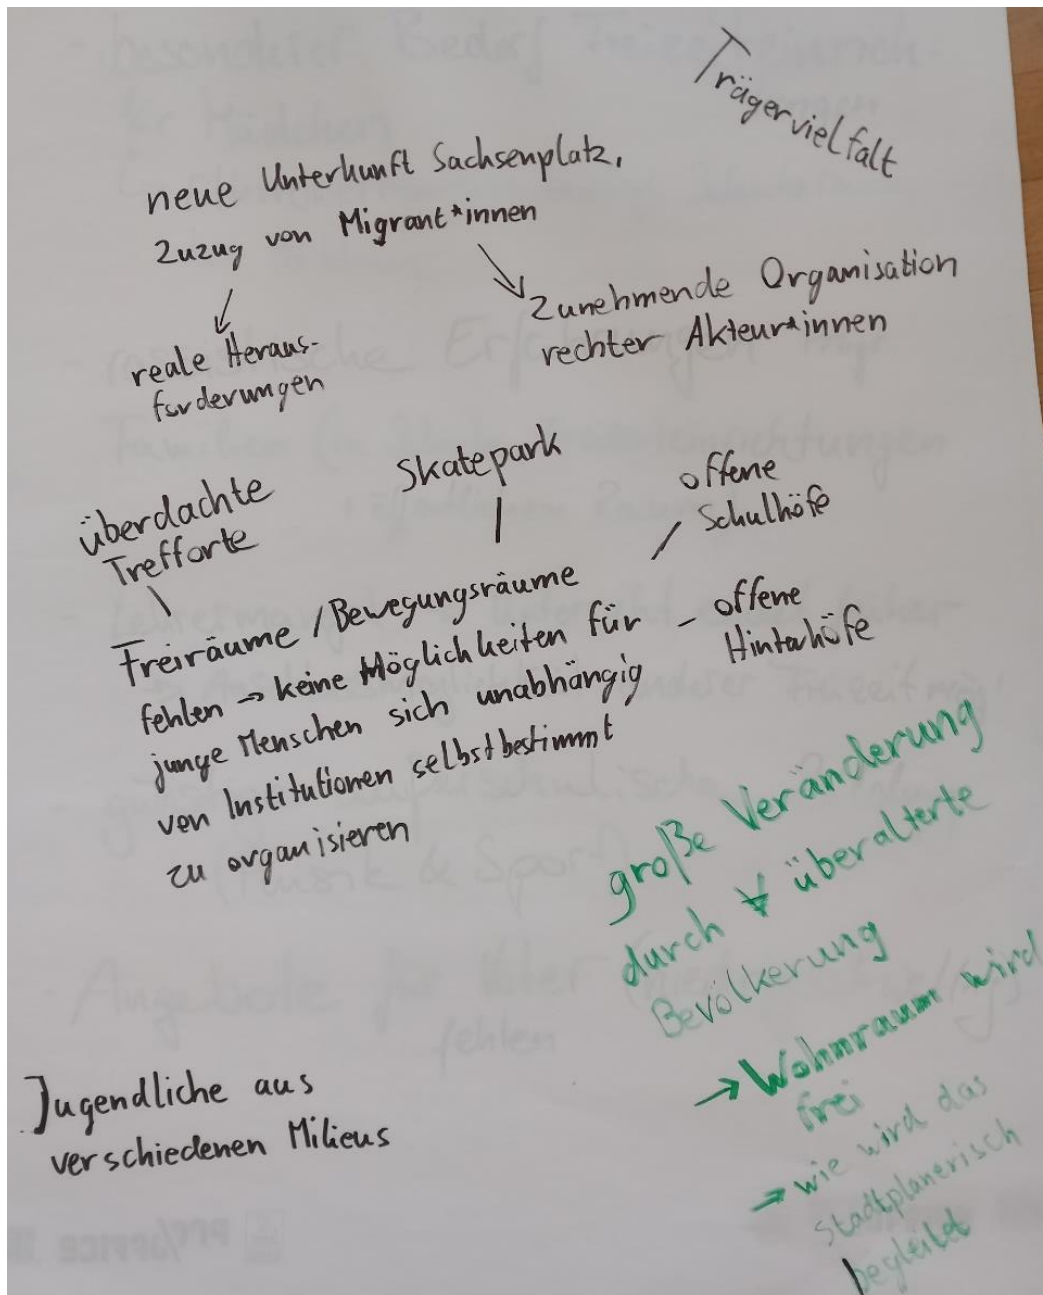 Trägervielfalt
neue Unterkunft Sachsenplatz,
Zuzug von Migrant*innen
zunehmende Organisation
rechter Akteur*innen
reale Heraus-
forderungen
Skatepark
offene
Schulhöfe
überdachte
Trefforte
Freiräume / Bewegungsräume
fehlen → keine Möglichkeiten für
junge Menschen sich unabhängig
von Institutionen selbstbestimmt
zu organisieren
offene
Hinterhöfe
große Veränderung
durch überalterte
Bevölkerung
→ Wohnraum wird
frei
→ wie wird das
stadtplanerisch
begleitet
Jugendliche aus
verschiedenen Milieus